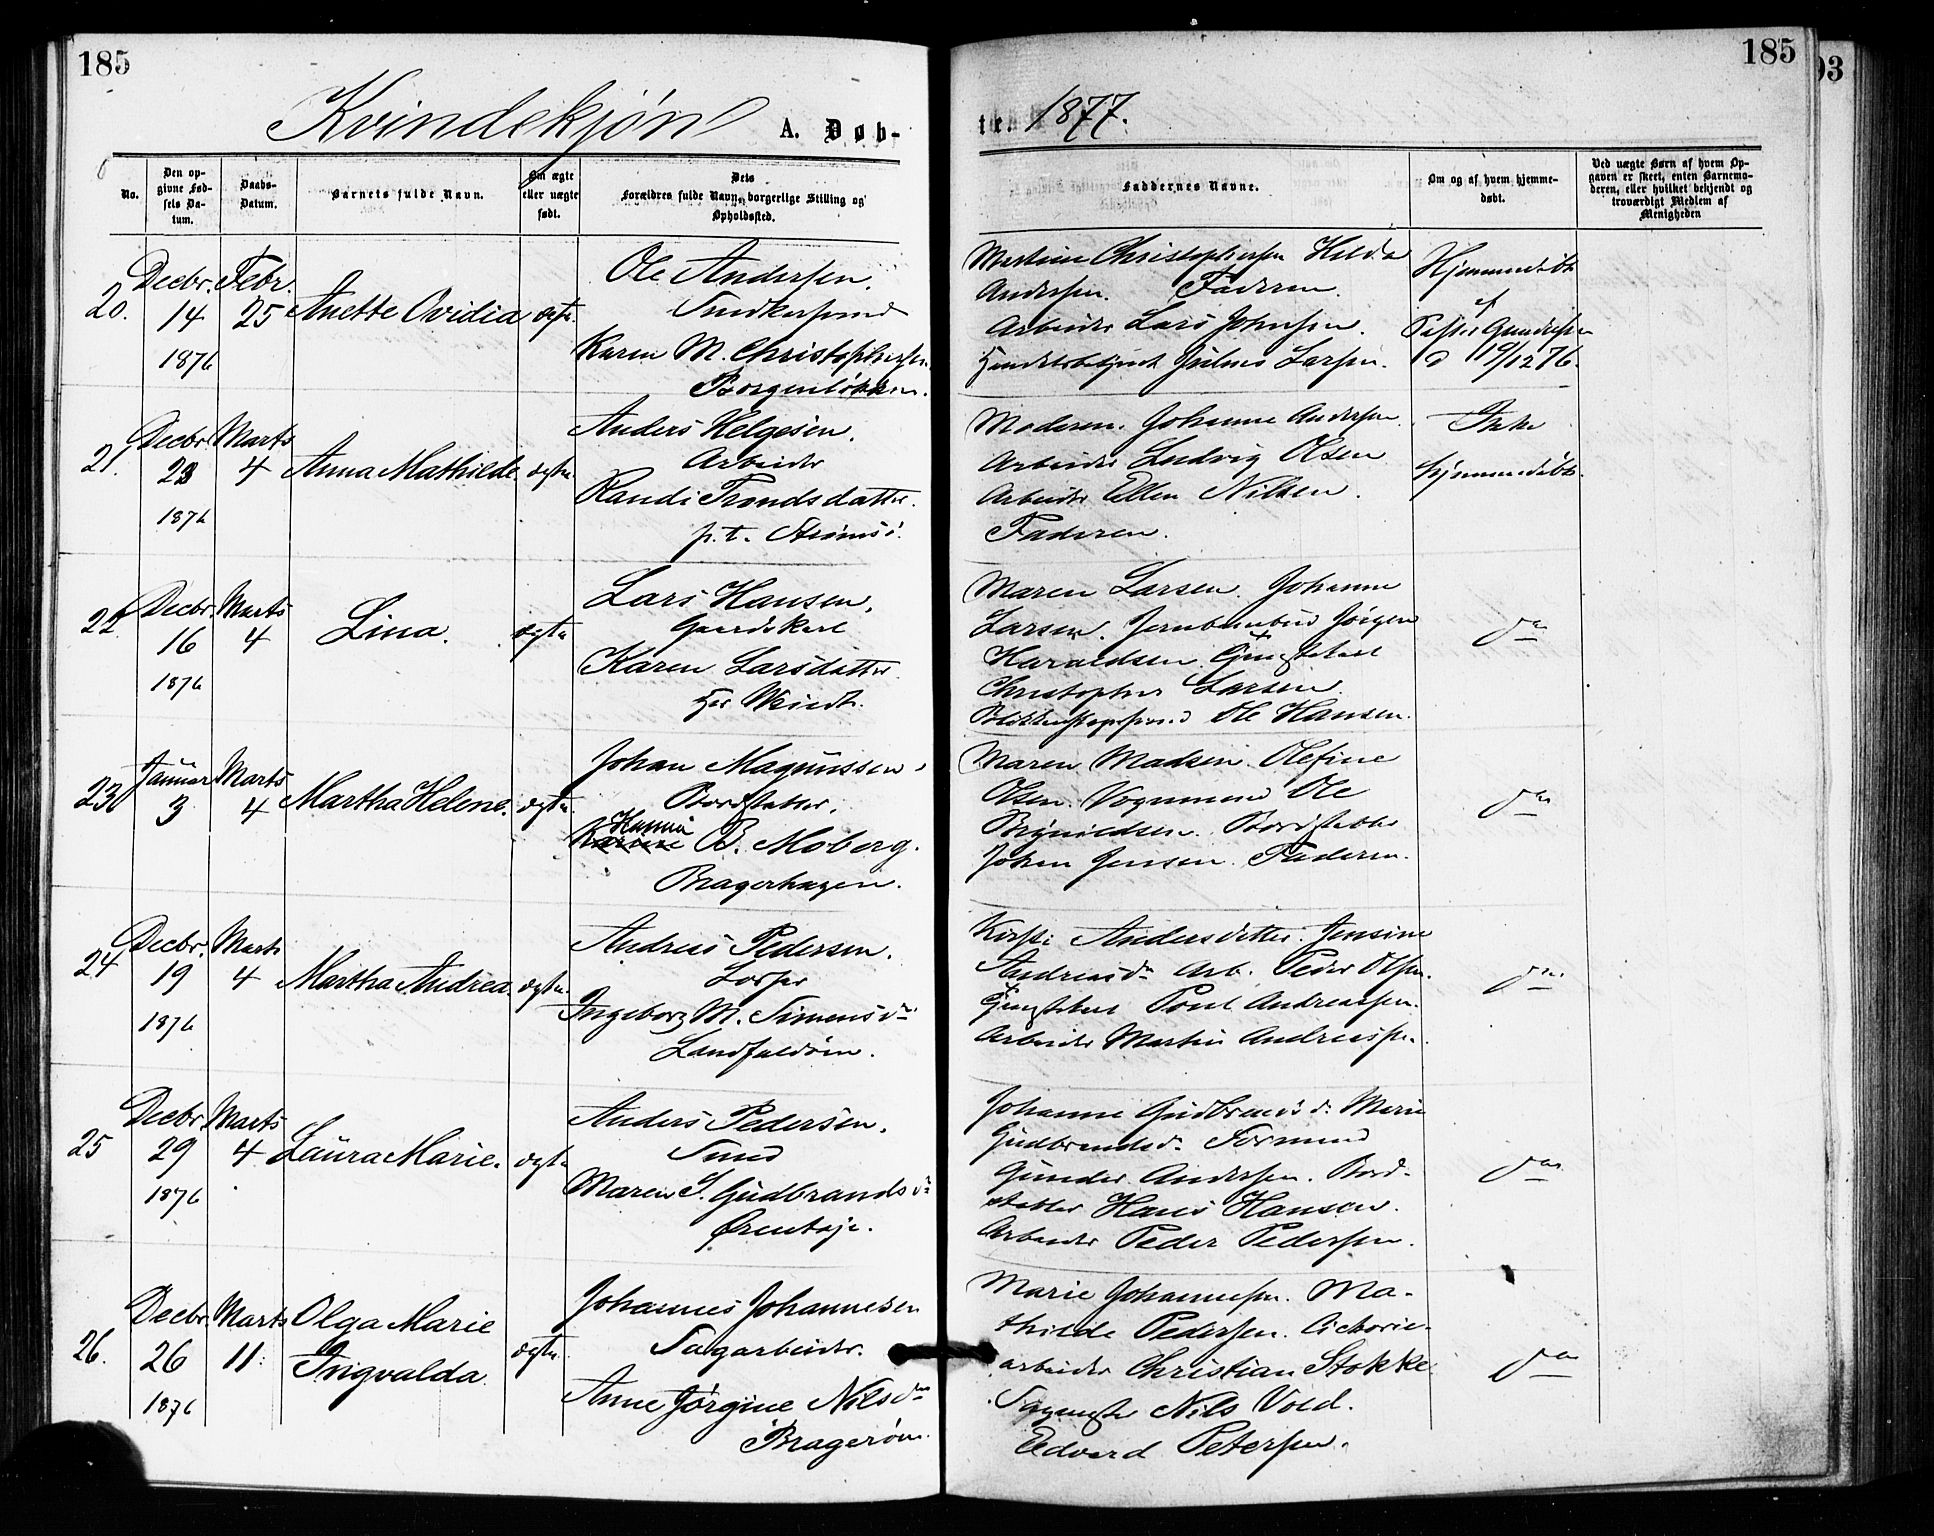 185
185
93
Kvindekjøn A. Døb-
te. 1877.
No.
Den opgivne Fødsels Datum.
Daabs-Datum.
Barnets fulde Navn.
Om ægte eller uægte født.
Dets Forældres fulde Navn, borgerlige Stilling og Opholdssted.
Faddernes Navne.
Om og af hvem hjemmedøbt.
Ved uægte Børn af hvem Opgaven er skeet, enten Barnemoderen, eller hvilket bekjendt og troværdigt Medlem af Menigheden
20.
Decbr. 14 1876
Febr. 25
Anette Ovidia
ægte.
Ole Andersen.
Snedkersvend
Karen M. Christophersen
Borgenløkken.
Martine Christophersen Hilda
Andersen. Faderen.
Arbeider Lars Johnsen.
Handelsbetjent Julius Larsen.
Hjemmedøbt
af
Pastor Gundersen
d 19/12 76.
21.
Decbr. 23 1876
Marts 4
Anna Mathilde.
ægte
Anders Helgesen.
Arbeider
Randi Trondsdatter.
p.t. Strømsø.
Moderen. Johanne Andersen
Arbeider Ludvig Olsen
Arbeider Ellen Nilsen.
Faderen.
Ikke
hjemmedøbt.
22.
Decbr. 16 1876
Marts 4
Lina.
ægte
Lars Hansen,
Gaardskarl
Karen Larsdatter
Maren Larsen. Johanne
Larsen. Jørgen
Haraldsen.
Christopher Larsen.
Ole Hansen.
do
23.
Januar 3
Marts 4
Martha Helene.
ægte.
Johan Magnussen
Bordstabler,
Karine Hanna B. Moberg.
Bragerhagen.
Maren Madsen. Olefine
Olsen. Vognmand Ole
Brynildsen. Bordstabler
Johan Jensen. Faderen.
do
24
Decbr. 19 1876
Marts 4
Martha Andrea.
ægte.
Andreas Pedersen.
Ingeborg M. Simensdr
Landfaldøen.
Andersdatter. Jensine
Andreasdr Arb. Peder Olsen.
Poul Andreassen.
Arbeider Martin Andreassen.
do
25
Decbr. 29 1876
Marts 4
Laura Marie.
ægte
Anders Pedersen.
Smed
Maren S. Gudbrandsdr
Ørentøje.
Johanne Gudbrandsd: Marie
Gudbrandsdr Formand
Gunder Andersen. Bord-
stabler Hans Hansen.
Arbeider Peder Pedersen.
do
26.
Decbr. 26 1876
Marts 11.
Olga Marie
Ingvalda
ægte.
Johannes Johannesen
Sagarbeider.
Anne Jørgine Nilsdr
Bragerøen.
Marie Johannesen. Ma-
thilde Pedersen. Cichorie-
arbeider Christian Stokke.
Sagmester Nils Vold.
Edvard Petersen.
do